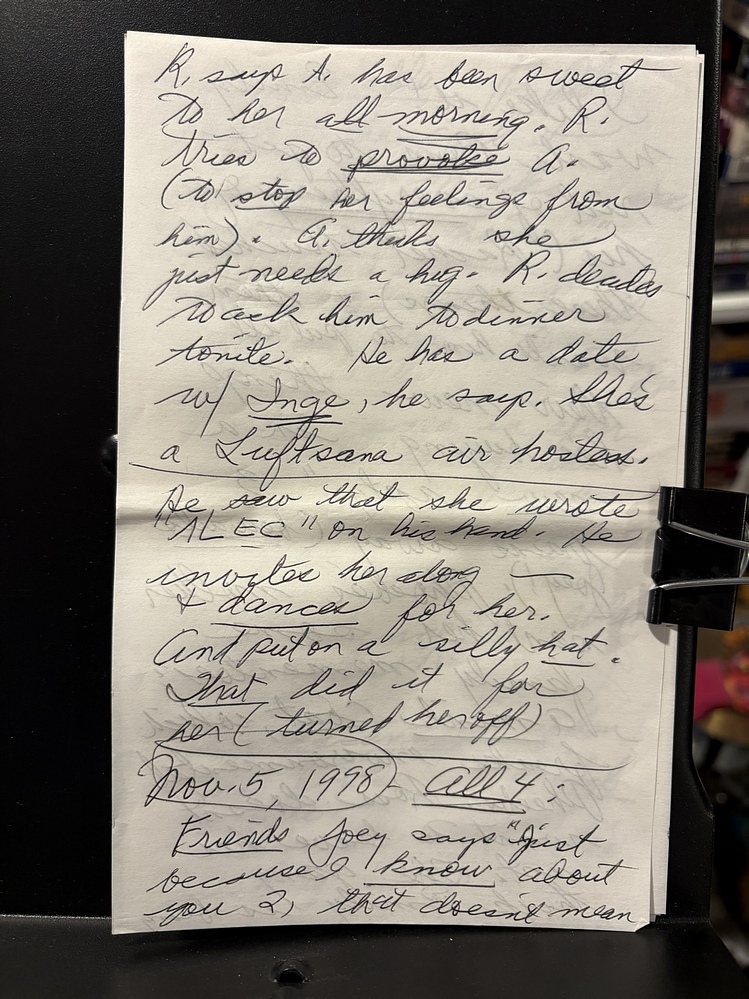 R. says A. has been sweet
to her all morning. R.
tries to provoke A.
(to stop her feelings from
him). A. thinks she
just needs a hug. R. decides
to ask him to dinner
tonite. He has a date
w/ Inge, he says. She's
a Luftsana air hostess.
He saw that she wrote
"ALEC" on his hand. He
invites her along —
& dances for her.
And put on a silly hat.
That did it for
her (turned her off)
Nov. 5, 1998 - All 4:
Friends Joey says "Just
because I know about
you 2, that doesn't mean